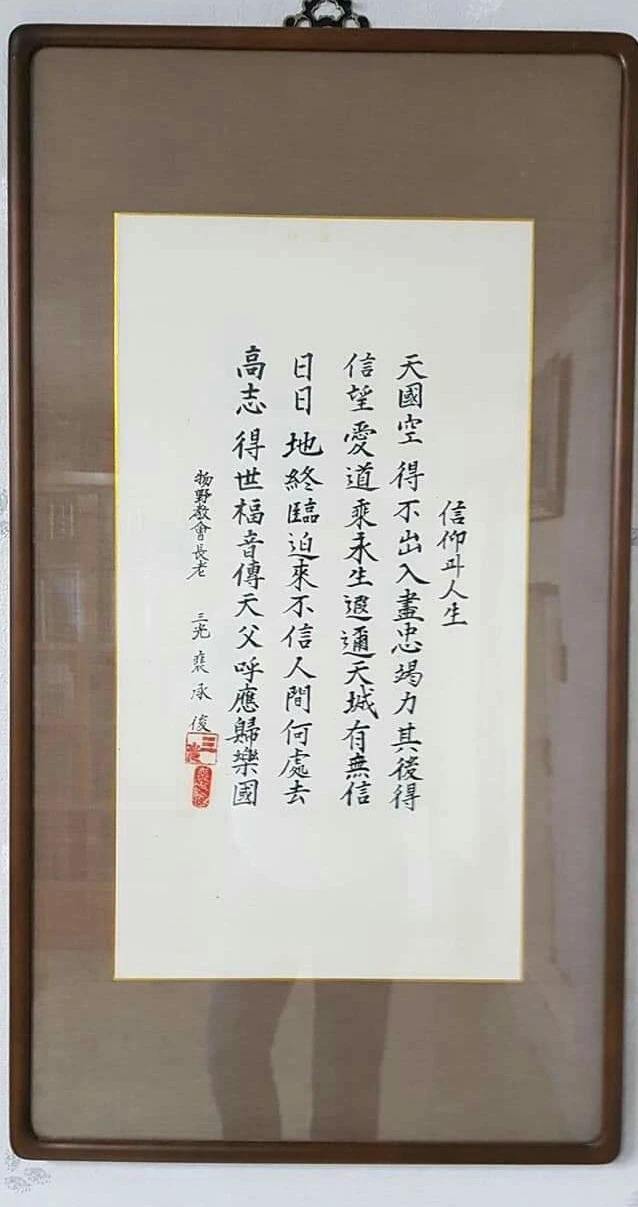 信仰과人生
天國空 得不出入盡忠竭力其後得
信望愛道乘永生遐邇天城有無信
日日 地終臨迫來不信人間何處去
高志 得世福音傳天父呼應歸樂國
物野敎會長老 三光 裵承俊
三光